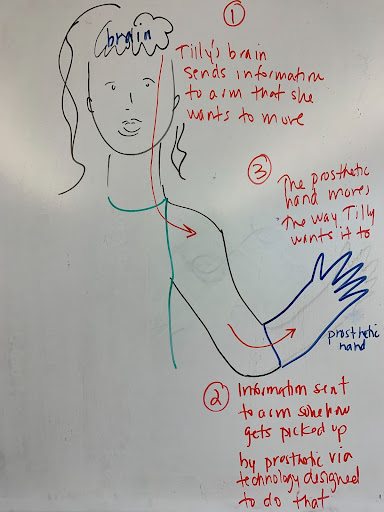 brain
①
Tilly's brain
sends information
to arm that she
wants to move
③
The prosthetic
hand moves
the way Tilly
wants it to
prosthetic
hand
②
Information sent
to arm somehow
gets picked up
by prosthetic via
technology designed
to do that